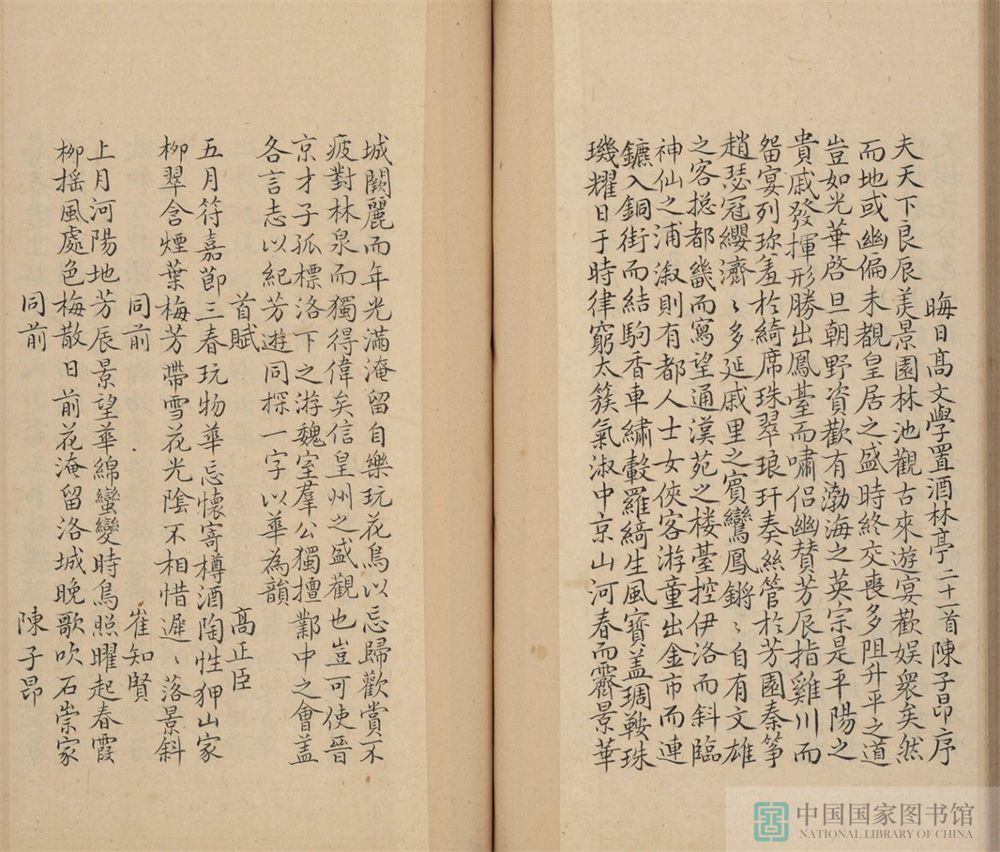 晦日高文學置酒林亭二十一首陳子昂序
夫天下良辰美景園林池觀古來遊宴歡娱衆矣然
而地或幽偏未覩皇居之盛時終交喪多阻升平之道
豈如光華啓旦朝野資歡有渤海之英宗是平陽之
貴戚發揮形勝出鳳臺而嘯侣幽賛芳辰指雞川而
留宴列珎羞於綺席珠翠琅玕奏絲管於芳園秦筝
趙瑟冠纓濟〻多延戚里之賓鸞鳳鏘〻自有文雄
之客揔都畿而寫望通漢苑之楼臺控伊洛而斜臨
神仙之浦溆則有都人士女俠客游童出金市而連
鑣入銅街而結駟香車繡轂羅綺生風寳盖琱鞍珠
璣耀日于時律窮太簇氣淑中京山河春而霽景華
城闕麗而年光滿淹留自樂玩花鳥以忘歸歡賞不
疲對林泉而獨得偉矣信皇州之盛觀也豈可使晉
京才子孤標洛下之游魏室羣公獨擅鄴中之會盖
各言志以紀芳遊同探一字以華為韻
首賦 高正臣
五月符嘉節三春玩物華忘懷寄樽酒陶性狎山家
柳翠含煙葉梅芳帶雪花光陰不相惜遲〻落景斜
同前 崔知賢
上月河陽地芳辰景望華綿蠻變時鳥照曜起春霞
柳摇風處色梅散日前花淹留洛城晚歌吹石崇家
同前 陳子昂
中国国家图书馆
NATIONAL LIBRARY OF CHINA